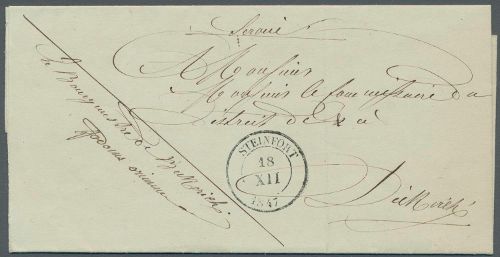 Service
A Monsieur
Monsieur le Commissaire du
District de & à
Diekirch
Le Bourgmestre de
STEINFORT
18
XII
1847